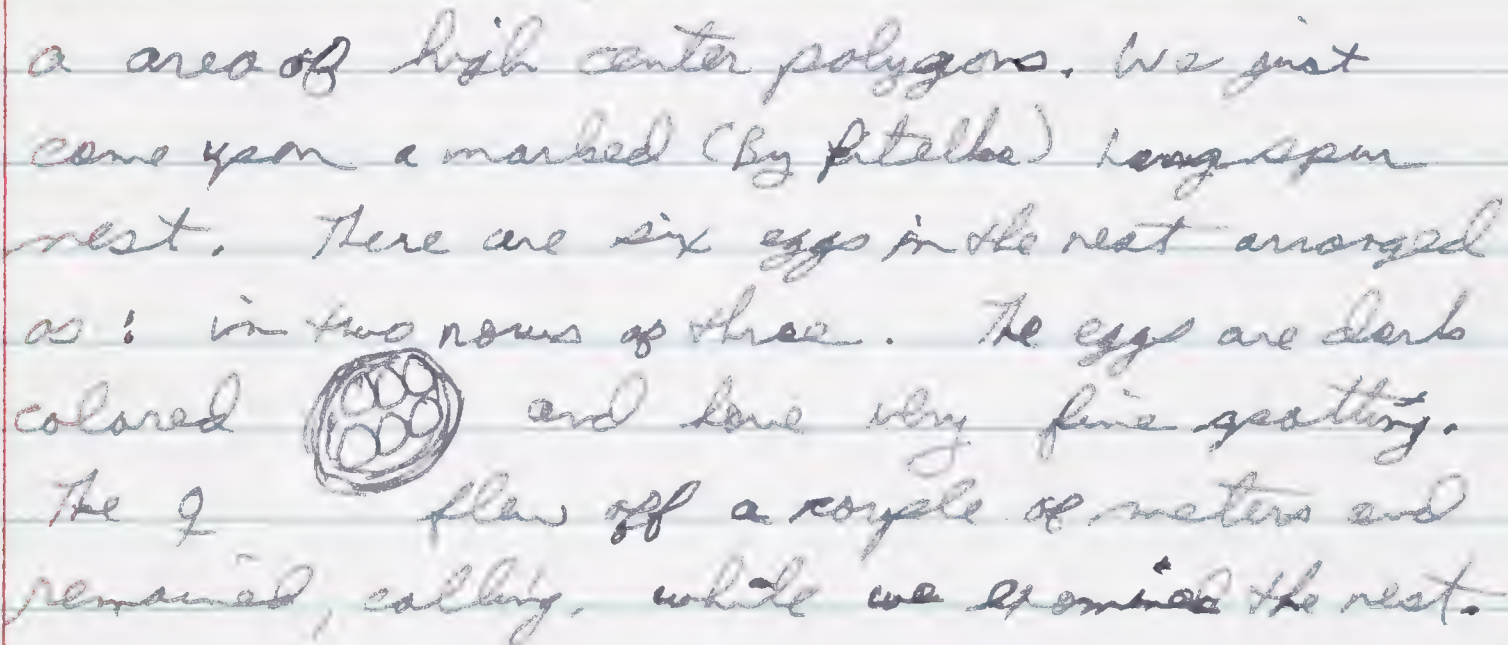 a area of high center polygons. We just
come upon a marked (By Pitelka) Longspur
nest. There are six eggs in the nest arranged
as: in two rows of three. The eggs are dark
colored and have very fine spotting.
The ♀ flew off a couple of meters and
remained, calling, while we examined the nest.